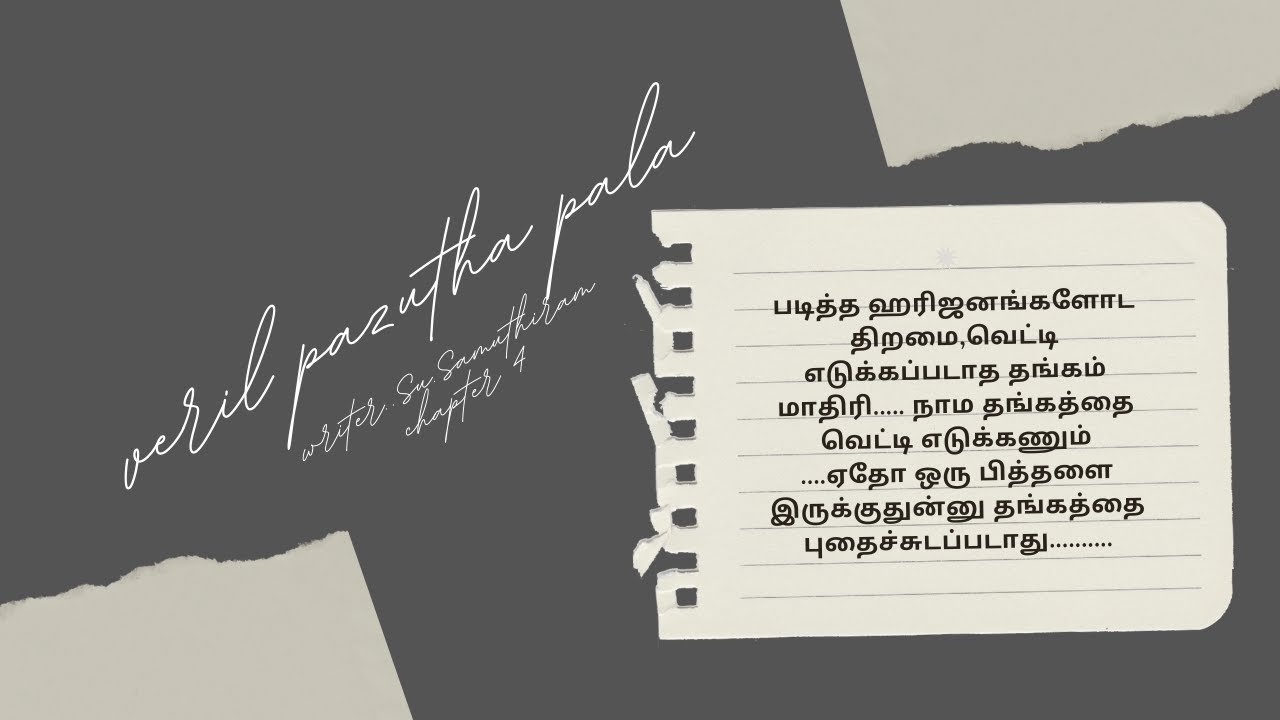 veril pazutha pala
writer..Su.Samuthiram
chapter 4
படித்த ஹரிஜனங்களோட
திறமை,வெட்டி
எடுக்கப்படாத தங்கம்
மாதிரி..... நாம தங்கத்தை
வெட்டி எடுக்கணும்
....ஏதோ ஒரு பித்தளை
இருக்குதுன்னு தங்கத்தை
புதைச்சுடப்படாது..........